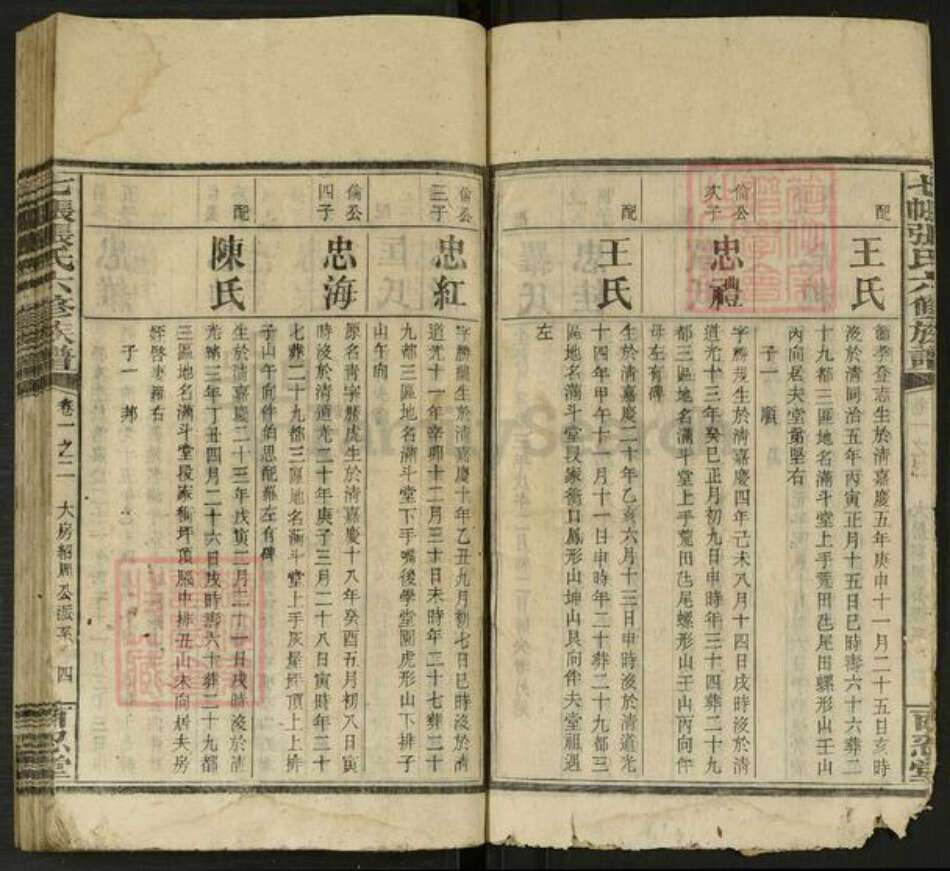 七帳張氏六修族譜
百忍堂
配
王氏
諭李登志生於清嘉慶五年庚申十一月二十五日亥時
沒於清同治五年丙寅正月十五日巳時壽六十六葬二
十九都三區地名滿斗堂上手荒田氹尾田螺形山壬山
丙向居夫堂第堅右
子一 順
倫公
次子
忠禮
字勝規生於清嘉慶四年己未八月十四日戌時沒於清
道光十三年癸巳正月初九日申時年三十四葬二十九
都三區地名滿斗堂上手荒田氹尾螺形山壬山丙向伴
母左有碑
配
王氏
生於清嘉慶二十年乙亥六月十三日申時沒於清道光
十四年甲午十二月十一日申時年二十葬二十九都三
區地名滿斗堂段家衝口鳳形山坤山艮向伴夫堂祖遇
左
倫公
三子
忠紅
字勝 生於清嘉慶十年乙丑九月初七日巳時沒於清
道光十一年辛卯十二月三十日未時年二十七葬二十
九都三區地名滿斗堂下手嘴後學堂園虎形山下排子
山午向
倫公
四子
忠海
原名青字勝虎生於清嘉慶十八年癸酉五月初八日寅
時沒於清道光二十年庚子三月二十八日寅時年二十
七葬二十九都三區地名滿斗堂上手灰屋坪頂上上排
子山午向伴伯思配羅左有碑
配
陳氏
生於清嘉慶二十三年戊寅二月二十一日戌時沒於清
光緒三年丁丑四月二十六日戌時壽六十葬二十九都
三區地名滿斗堂段家衝坪頂熙中排丑山未向居夫房
姪啓妻羅右
子一 邦
七帳張氏六修族譜
卷一之二 大房紹周公派系 四
百忍堂